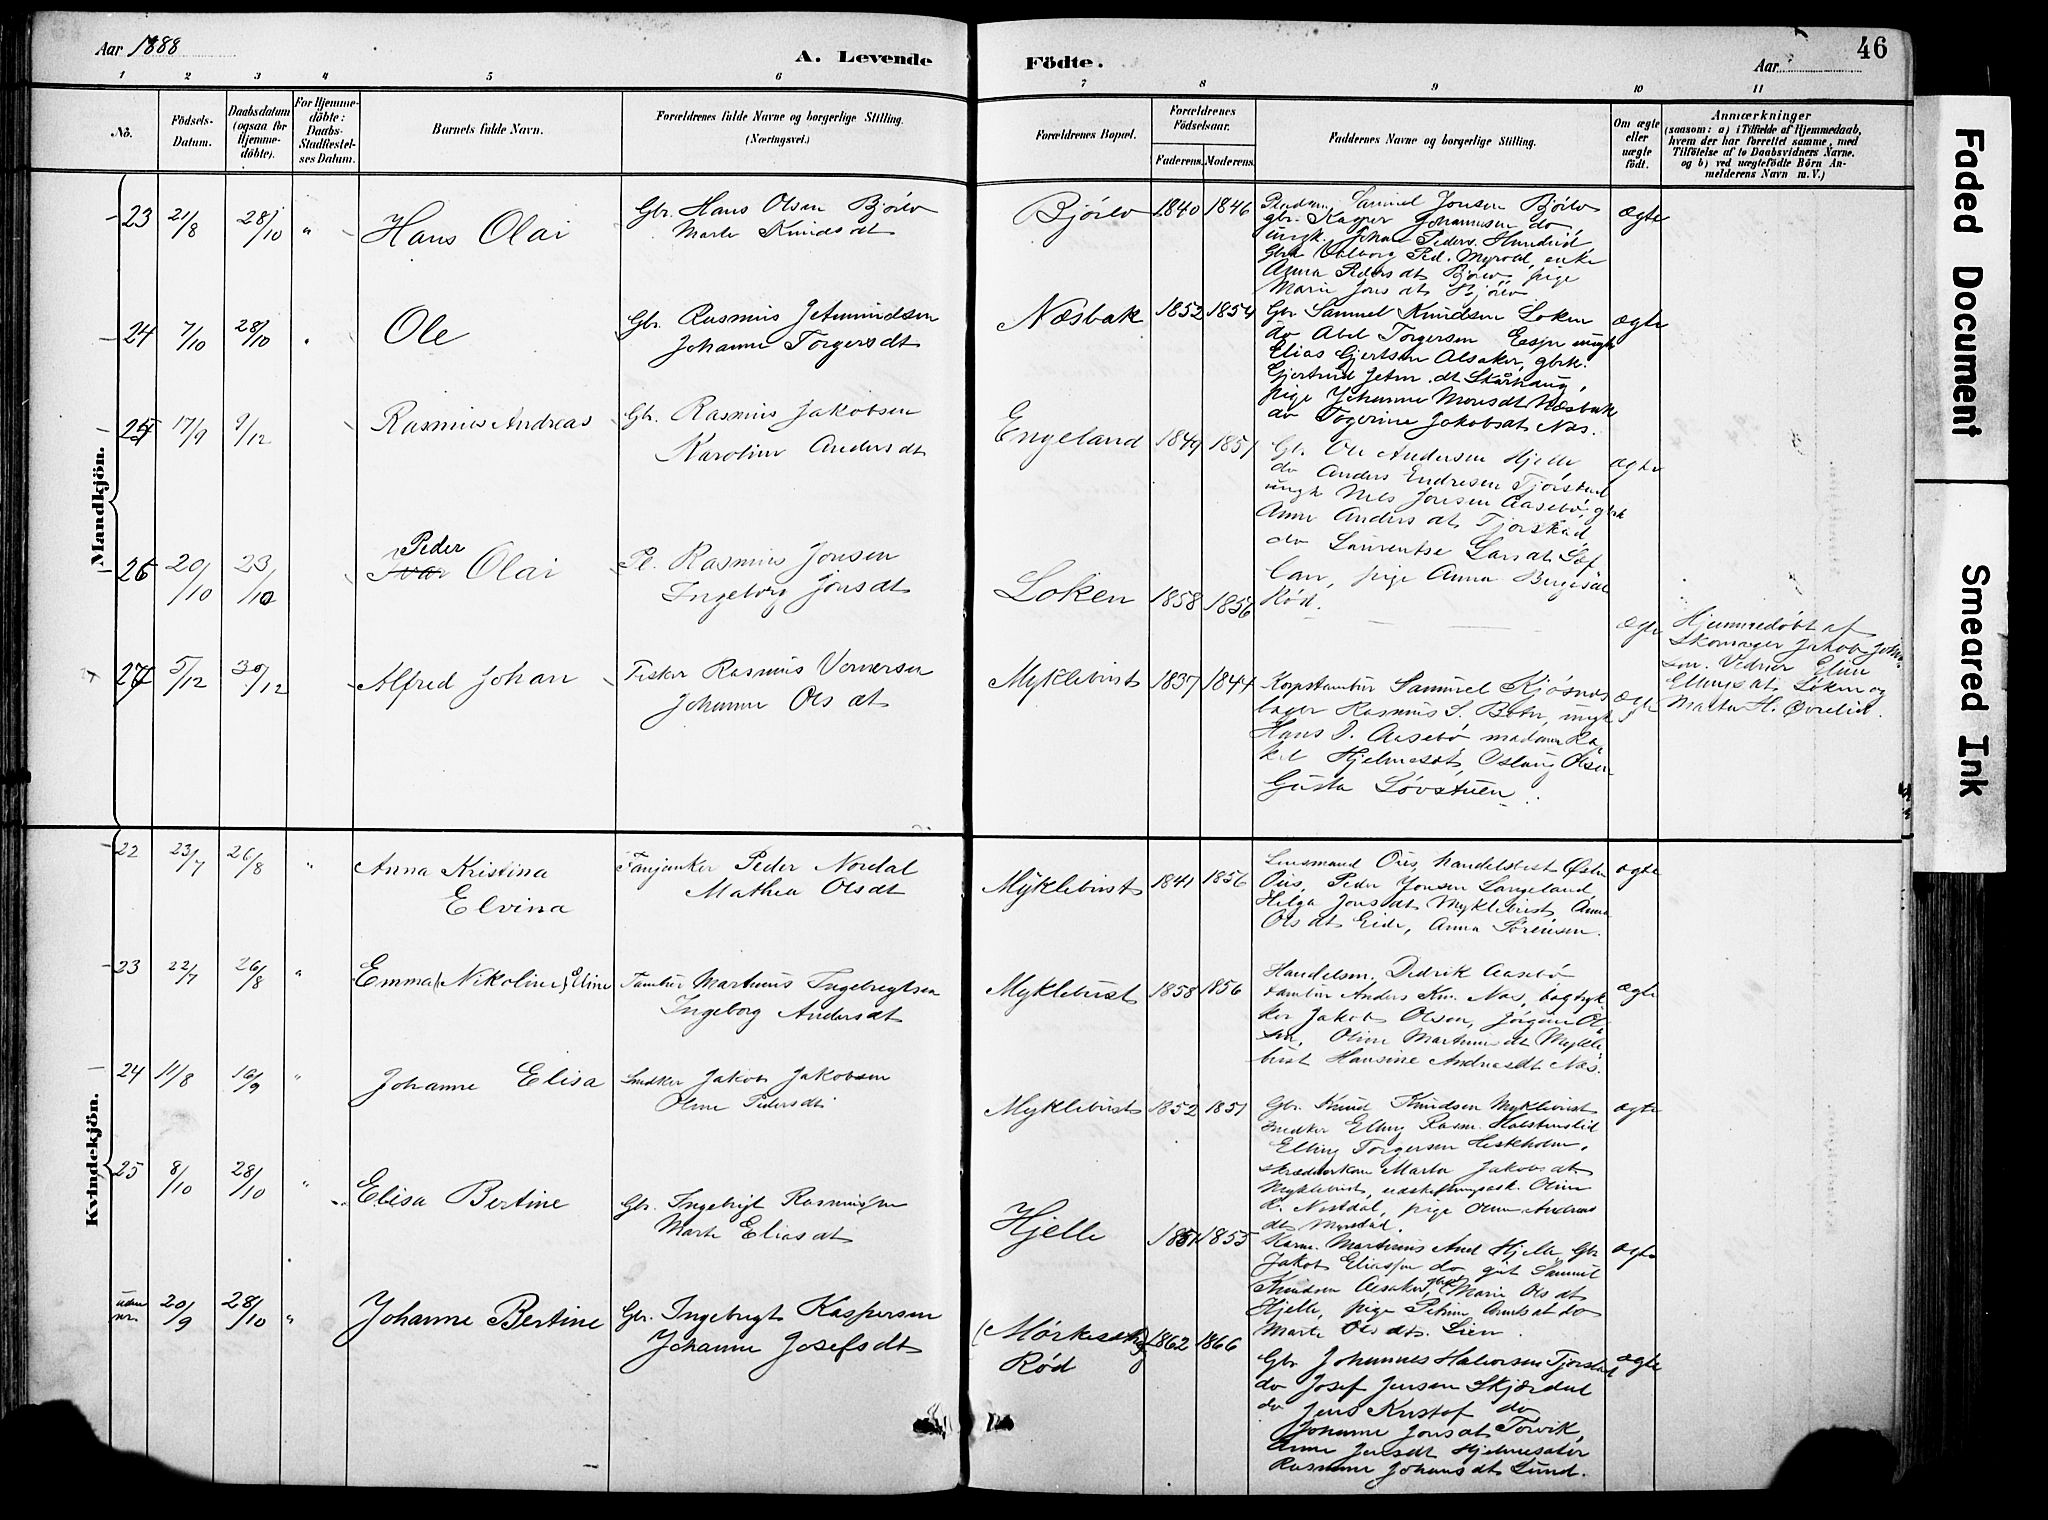 Aar 1888
A. Levende
Födte.
Aar
46
1 2 3 4 5 6 7 8 8 9 10 11
No.
Födsels-
Datum.
Daabsdatum
(ogsaa for
Hjemme-
döbte).
For Hjemme-
döbte:
Daabs-
Stadfæstel-
ses Datum.
Barnets fulde Navn.
Forældrenes fulde Navne og borgerlige Stilling.
(Næringsvei.)
Forældrenes Bopæl.
Forældrenes
Födselsaar.
Faderens. Moderens.
Faddernes Navne og borgerlige Stilling.
Om ægte
eller
uægte
födt.
Anmærkninger
(saasom: a) i Tilfælde af Hjemmedaab,
hvem der har forrettet samme, med
Tilföielse af to Daabsvidners Navne.
og b) ved uægtefödte Börn An-
melderens Navn m. V.)
Mandkjön.
23 21/8 28/10 " Hans Olai
Gbr. Hans Olsen Bjørlo
Marte Knudsdt
Bjørlo 1840 1846
Samuel Jonsen Bjørlo
gbr. Kasper Johannesen do,
ungk. Johan Peders.
Gbrk Valborg Ped. Myrold, enke
Anna Pedersdt Bjørlo, pige
Marie Jonsdt Bjørlo
ægte
24 7/10 28/10 " Ole
Gbr. Rasmus Jetmundsen
Johanne Torgersdt
Næsbak 1852 1854
Gbr Samuel Knudsen Løken
do Abel Torgersen Espe ungk
Elias Gjertsen Alsaker, gbrk.
Gjertrud Jetm.dt Skårhaug,
pige Johanne Monsdt Næsbak
do Togerine Jakobsdt Nøs.
ægte
25 17/9 9/12 Rasmus Andreas
Gbr. Rasmus Jakobsen
Karoline Andersdt
Engeland 1849 1851
Gb. Ole Andersen Hjelle
do Anders Endresen Tjørstad
ungk Nils Jonsen Aasebø, gbrk
Anne Andersdt Tjørstad
do Laurentse Larsdt
pige Anna
Rød.
ægte
26 20/10 23/10 Peder
Ivar Olai
Pl. Rasmus Jonsen
Ingeborg Jonsdt
Løken 1858 1856
ægte
Hjemmedøbt af
Skomager Jakob John-
sen. Vidner Eline
Ellingsdt Løken og
Marta H. Øvrelid.
27 5/12 30/12 Alfred Johan
Fisker Rasmus Vernersen
Johanne Olsdt
Myklebust 1837 1844
Korpstambur Samuel Kjøsnes
bager Rasmus S. Botn, ungk
Hans J. Aasebø madam Ra-
kel Hjelmeset, Oslaug Olsen
Gusta Løvstuen.
ægte
Kvindekjön.
22 23/7 26/8 " Anna Kristina
Elvina
Fanjunker Peder Nordal
Mathea Olsdt
Myklebust 1841 1856
Lensmand Ous, handelsbest Østen
Ous, Peder Jonsen Langeland
Helga Jonsdt Myklebust, Anna
Olsdt Eide, Anna Sørensen.
ægte
23 22/7 26/8 " Emma (Nikoline) Eline
Tambur Martinus Ingebrigtsen
Ingeborg Andersdt
Myklebust 1858 1856
Handelsm. Didrik Aasebø
tambur Anders Kn. Nøs, bogtryk-
ker Jakob Olsen, Jørgine Ol-
sen, Oline Martinusdt Mykle-
bust Hansine Andreasdt Nøs.
ægte
24 11/8 16/9 " Johanne Elisa
Snedker Jakob Jakobsen
Oline Pedersdt
Myklebust 1852 1851
Gbr. Knud Knudsen Myklebust
snedker Elling Rasm. Holstenslid
Elling Torgersen Hestholm,
skrædderkone Marta Jakobsdt
Myklebust, Oline
R. Nordal, pige Oline Andreas
dt Myrstad.
ægte
25 8/10 28/10 " Elisa Bertine
Gbr. Ingebrigt Rasmussen
Marte Eliasdt
Hjelle 1851 1855
Karm. Martinus And Hjelle, Gbr
Jakob Eliassen do gbr Samuel
Knudsen Alsaker, gbrk Marie Olsdt
Hjelle, pige Petrine Andsdt do
Marte Olsdt. Lien.
ægte
uden
nr. 20/9 28/10 " Johanne Bertine
Gbr. Ingebrigt Kaspersen
Johanne Josefsdt
Rød
1862 1866
Gbr Johannes Halvorsen Tjørstad
do Josef Jensen Skjærdal
do Jens Kristof. do
Johanne Jonsdt Torvik,
Anne Jensdt Hjelmesæter
Rasmine Johansdt Lund.
ægte
Faded Document
Smeared Ink